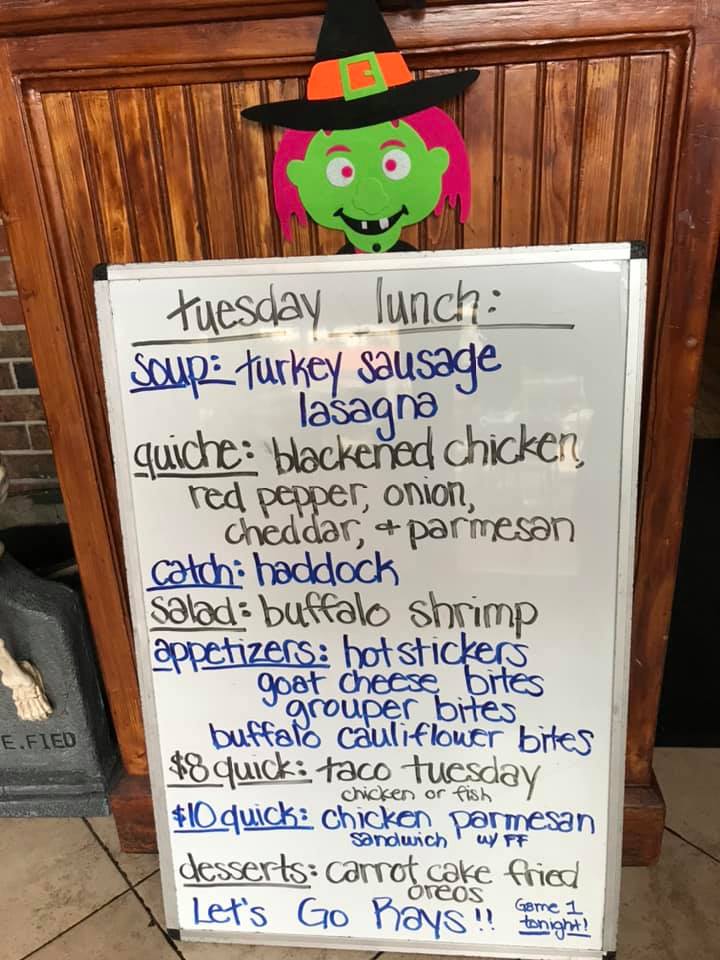 tuesday lunch:
soup: turkey sausage
lasagna
quiche: blackened chicken,
red pepper, onion,
cheddar, + parmesan
catch: haddock
salad: buffalo shrimp
appetizers: hot stickers
goat cheese bites
grouper bites
buffalo cauliflower bites
$8 quick: taco tuesday
chicken or fish
$10 quick: chicken parmesan
sandwich w/ FF
desserts: carrot cake fried
oreos
Let's Go Rays!! Game 1
tonight!
E.FIED